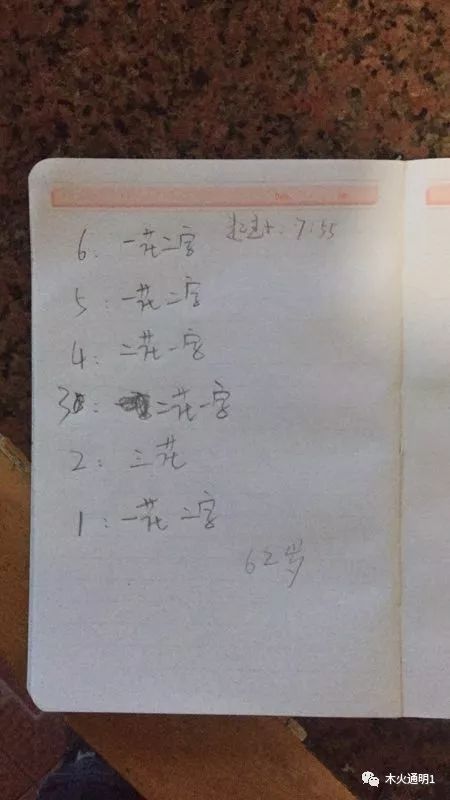 6: 一花二字 起卦: 7:55
5: 一花二字
4: 二花一字
3: 二花一字
2: 三花
1: 一花二字
62岁
木火通明1